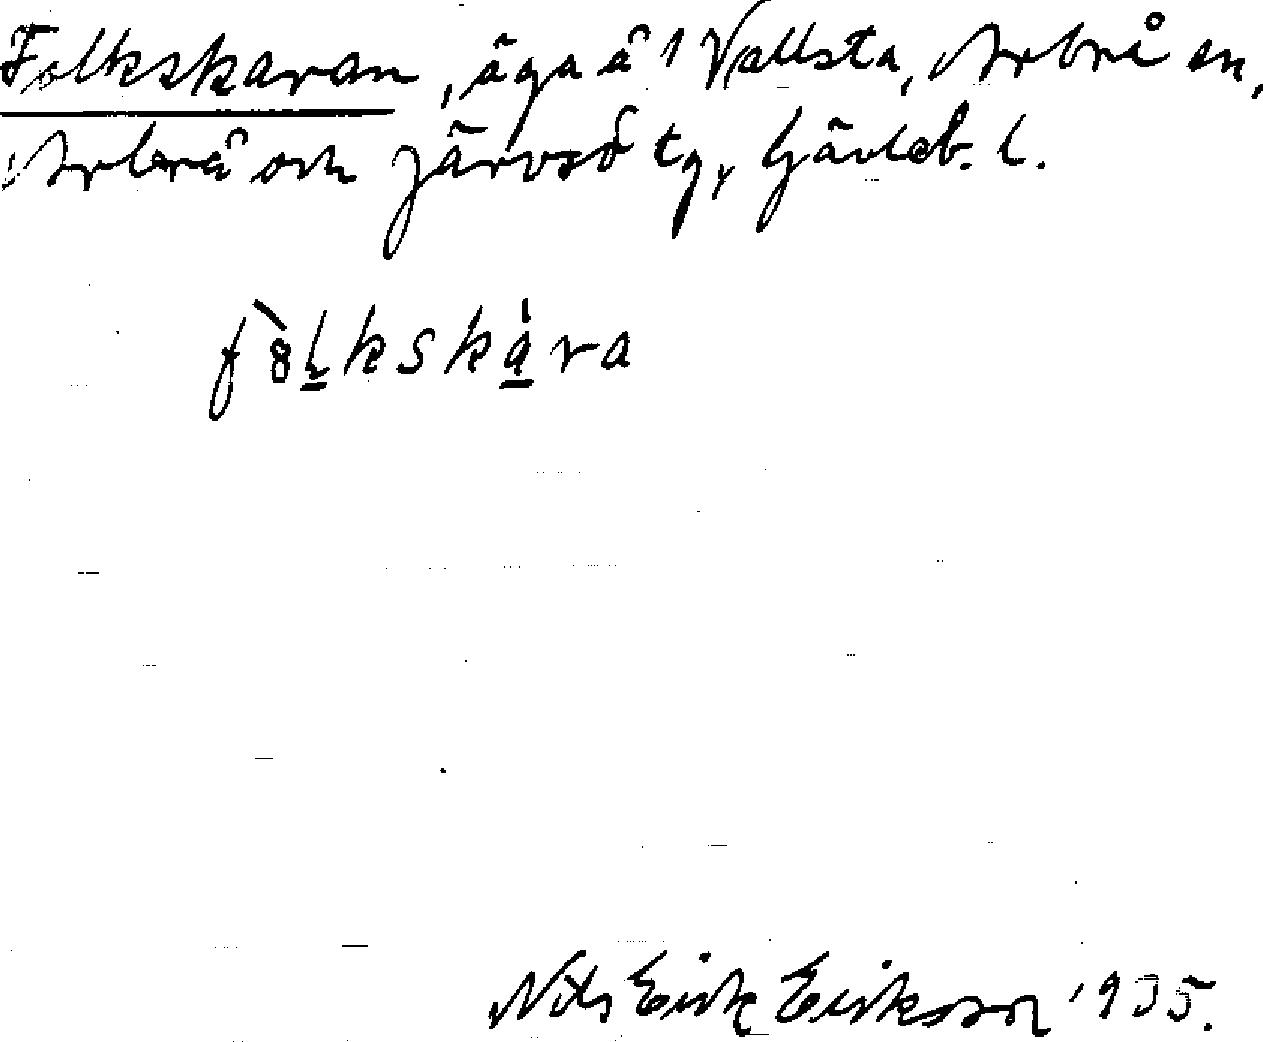 Folkskaran, äga å 1 Vallsta, Arbrå sn,
Arbrå och Järvsö tg, Gävleb. l.
fòlkskára
Nils Erik Eriksson 1935.